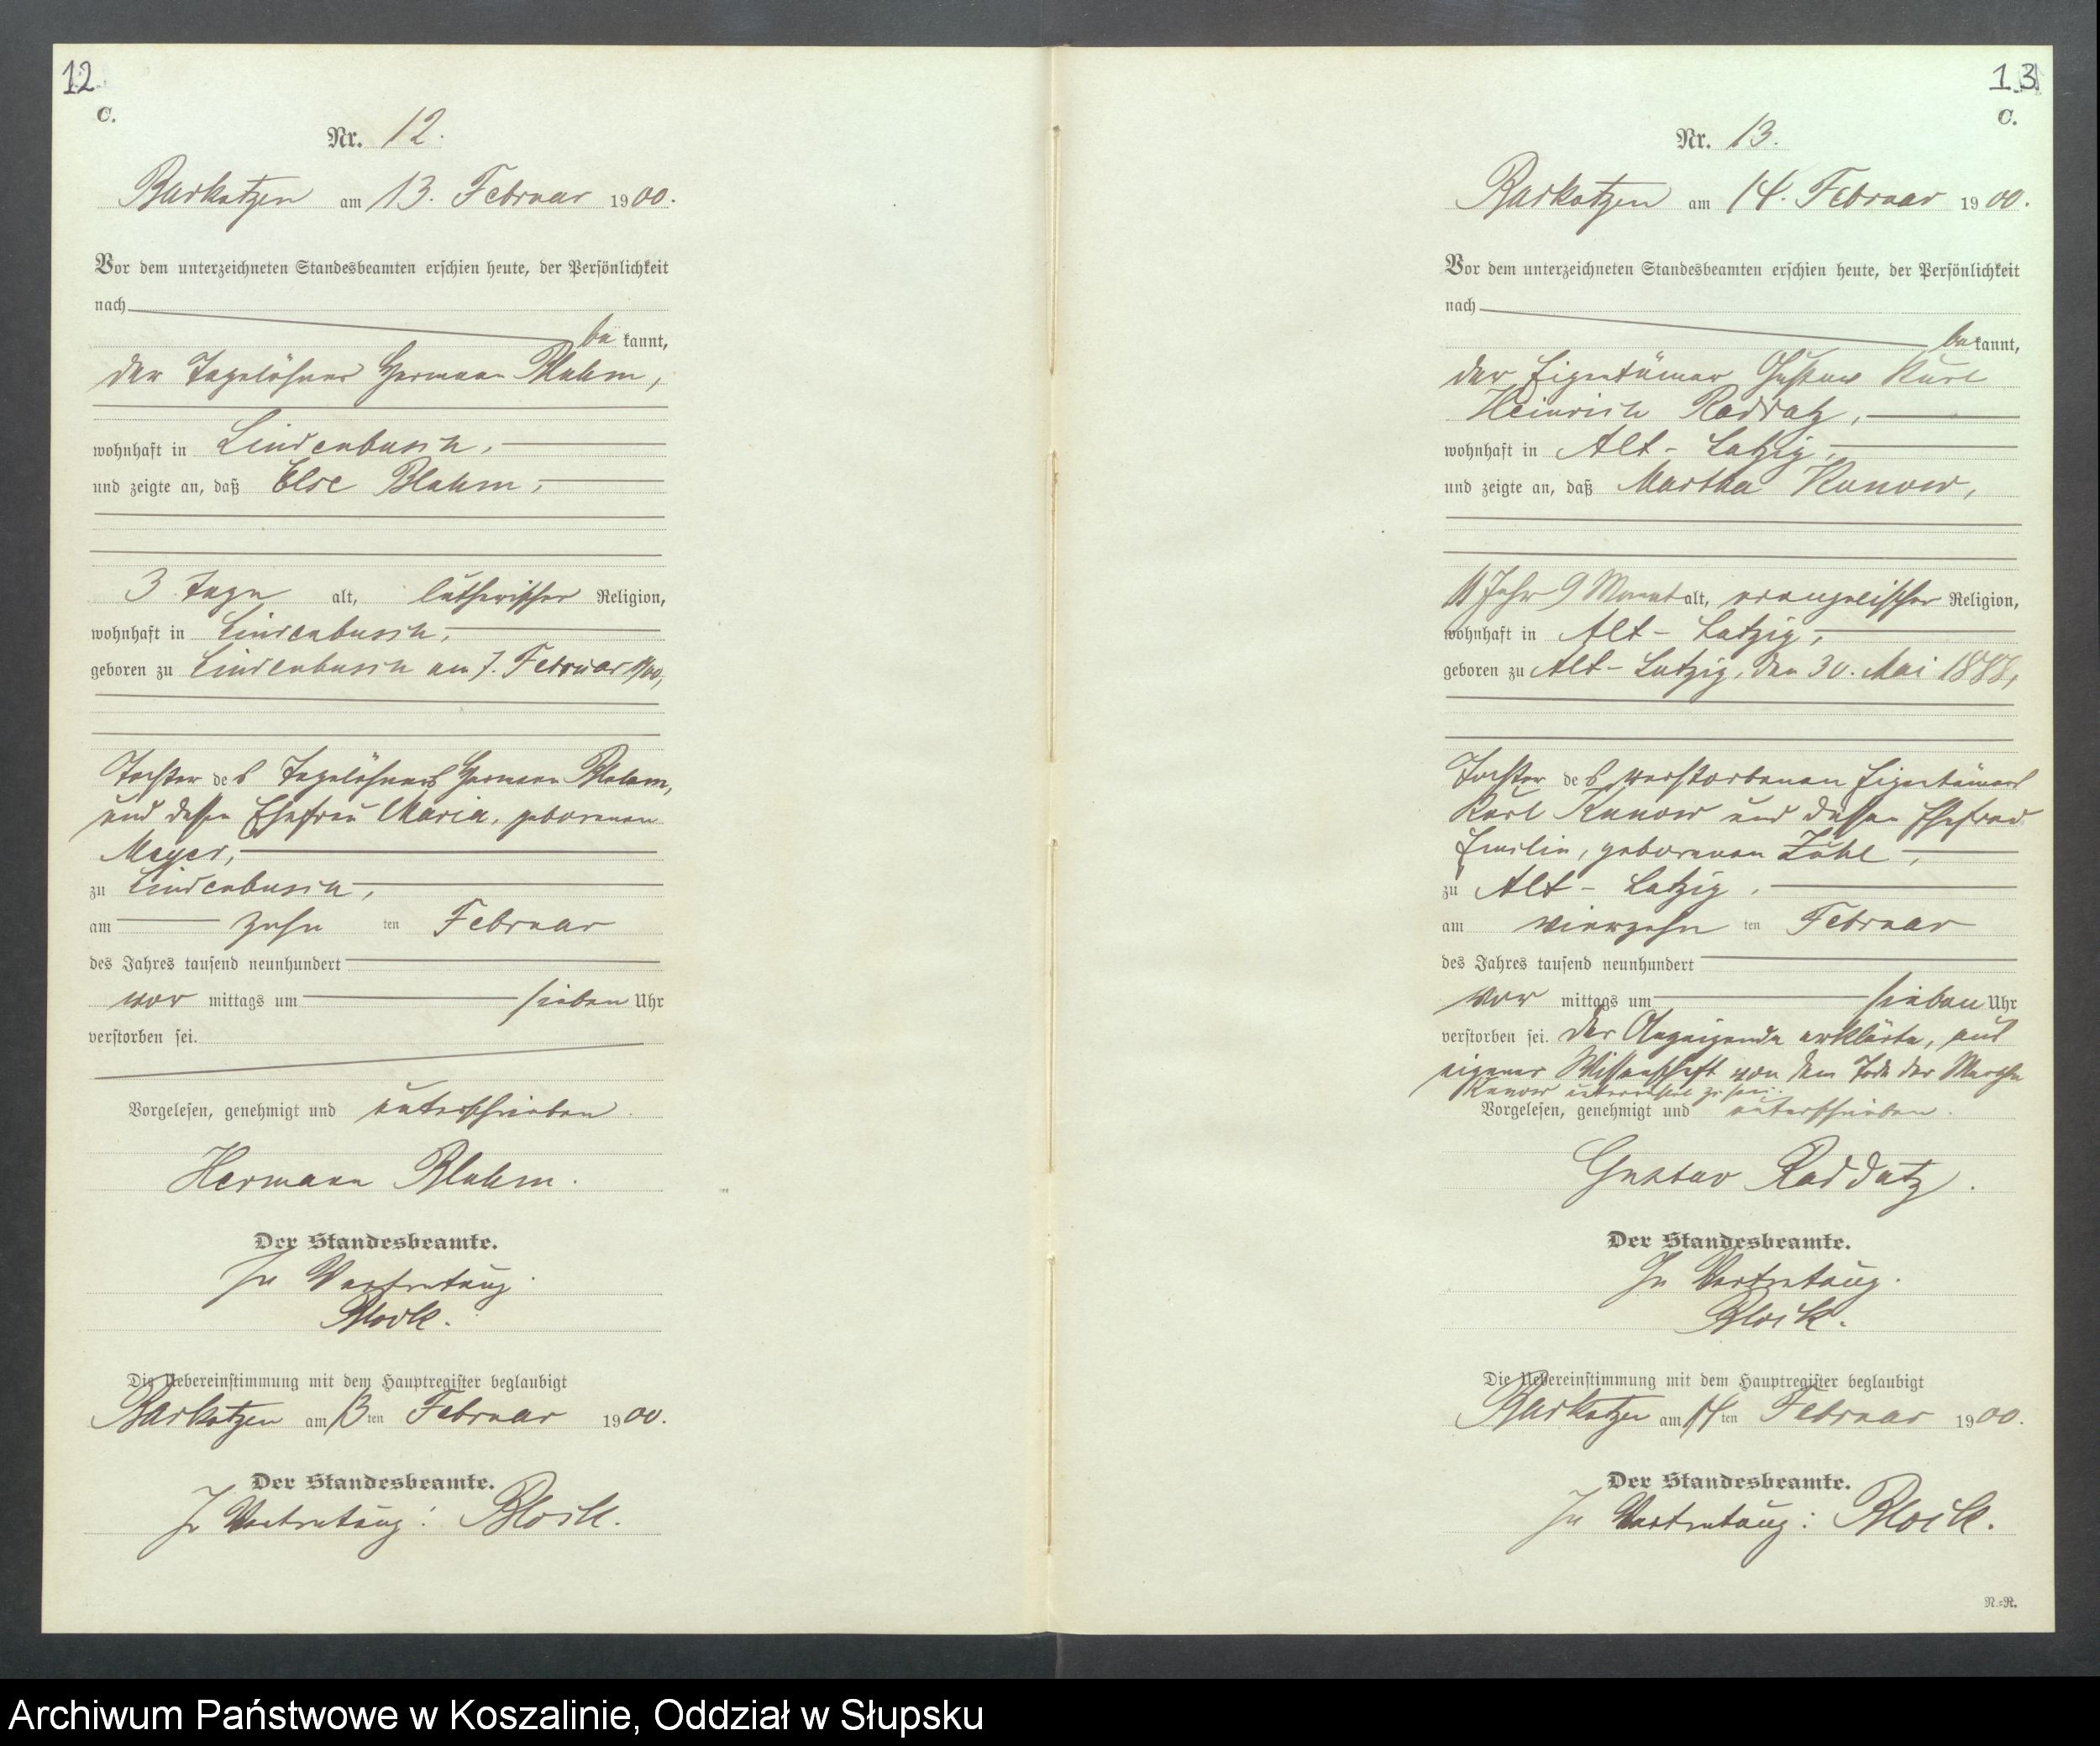 12
C.
Nr. 12.
Barkotzen am 13. Februar 1900.
Vor dem unterzeichneten Standesbeamten erschien heute, der Persönlichkeit
nach
be kannt,
der Tagelöhner Hermann Bluhm,
wohnhaft in Lindenbusch,
und zeigte an, daß Else Bluhm,
3 Tage alt, lutherischer Religion,
wohnhaft in Lindenbusch,
geboren zu Lindenbusch am 7. Februar 1900,
Tochter des Tagelöhners Hermann Bluhm,
und dessen Ehefrau Maria, geborenen
Meyer,
zu Lindenbusch,
am zehn ten Februar
des Jahres tausend neunhundert
vor mittags um sieben Uhr
verstorben sei.
Vorgelesen, genehmigt und unterschrieben.
Hermann Bluhm.
Der Standesbeamte.
In Vertretung.
Block.
Die Uebereinstimmung mit dem Hauptregister beglaubigt
Barkotzen am 13ten Februar 1900.
Der Standesbeamte.
In Vertretung: Block.
13
C.
Nr. 13.
Barkotzen am 14. Februar 1900.
Vor dem unterzeichneten Standesbeamten erschien heute, der Persönlichkeit
nach
be kannt,
der Eigentümer Gustav Karl
Heinrich Raddatz,
wohnhaft in Alt-Latzig,
und zeigte an, daß Martha Kunow,
11 Jahr 9 Monat alt, evangelischer Religion,
wohnhaft in Alt-Latzig,
geboren zu Alt-Latzig, den 30. Mai 1888,
Tochter des verstorbenen Eigentümers
Karl Kunow und dessen Ehefrau
Emilie, geborenen Zühl,
zu Alt-Latzig,
am vierzehn ten Februar
des Jahres tausend neunhundert
vor mittags um sieben Uhr
verstorben sei. Der Anzeigende erklärte, aus
eigener Wissenschaft von dem Tode der Martha
Kunow unterrichtet zu sein.
Vorgelesen, genehmigt und unterschrieben.
Gustav Raddatz.
Der Standesbeamte.
In Vertretung.
Block.
Die Uebereinstimmung mit dem Hauptregister beglaubigt
Barkotzen am 14ten Februar 1900.
Der Standesbeamte.
In Vertretung: Block.
N.=R.
Archiwum Państwowe w Koszalinie, Oddział w Słupsku